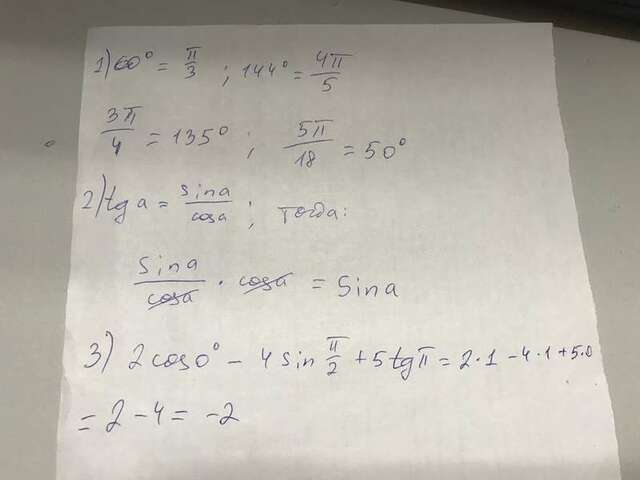 1) 60° = π/3 ; 144° = 4π/5
3π/4 = 135° ; 5π/18 = 50°
2) tg a = sin a/cos a ; тогда:
sin a/cos a · cos a = sin a
3) 2 cos 0° - 4 sin π/2 + 5 tg π = 2·1 - 4·1 + 5·0
= 2 - 4 = -2